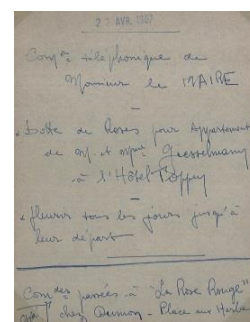 27 AVR. 1967
Comde téléphonique de
Monsieur le MAIRE
Botte de Roses pour Appartement
de M. et Mme
à l'Hôtel
fleurir tous les jours jusqu'à
leur départ
Comdes passées à "La Rose Rouge"
chez - Place aux Herbes